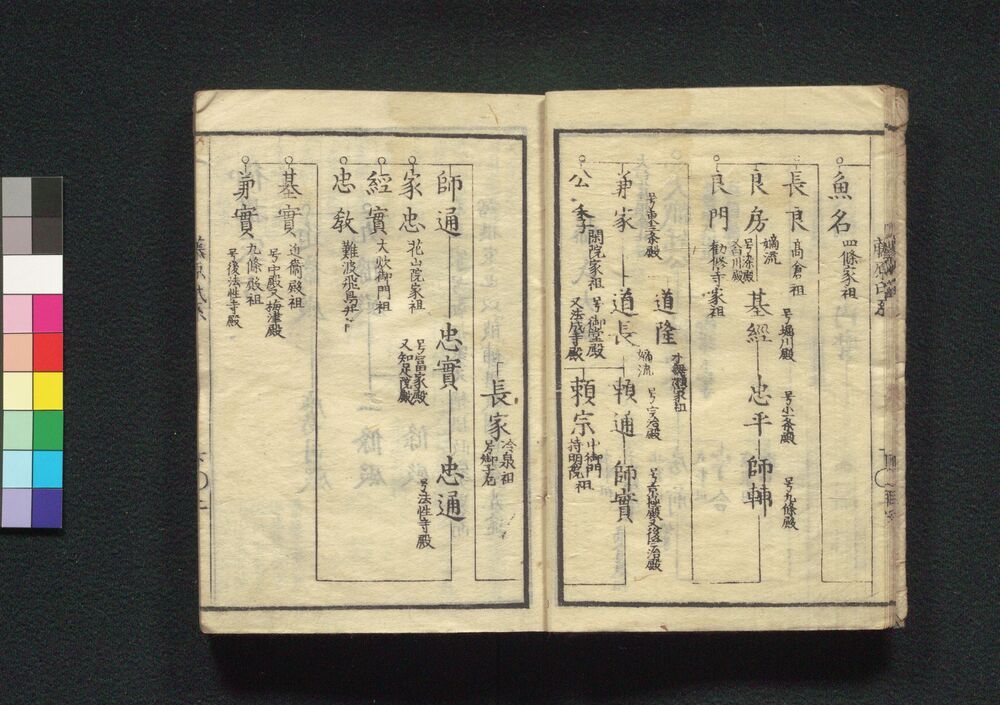 魚名
四條家祖
長良
高倉祖
良房
嫡流
号染殿
又白川殿
基經
号堀川殿
忠平
号小一条殿
師輔
号九條殿
良門
勧修寺家祖
兼家
号東三条殿
道隆
水無瀬家祖
道長
嫡流
号御堂殿
又法成寺殿
頼通
号宇治殿
師實
号京極殿又後宇治殿
公季
閑院家祖
頼宗
中御門
持明院祖
長家
冷泉祖
号御子左
師通
忠實
号富家殿
又知足院殿
忠通
号法性寺殿
家忠
花山院家祖
經實
大炊御門祖
忠教
難波飛鳥井
基實
近衛殿祖
号中殿又梅津殿
兼實
九條殿祖
号後法性寺殿